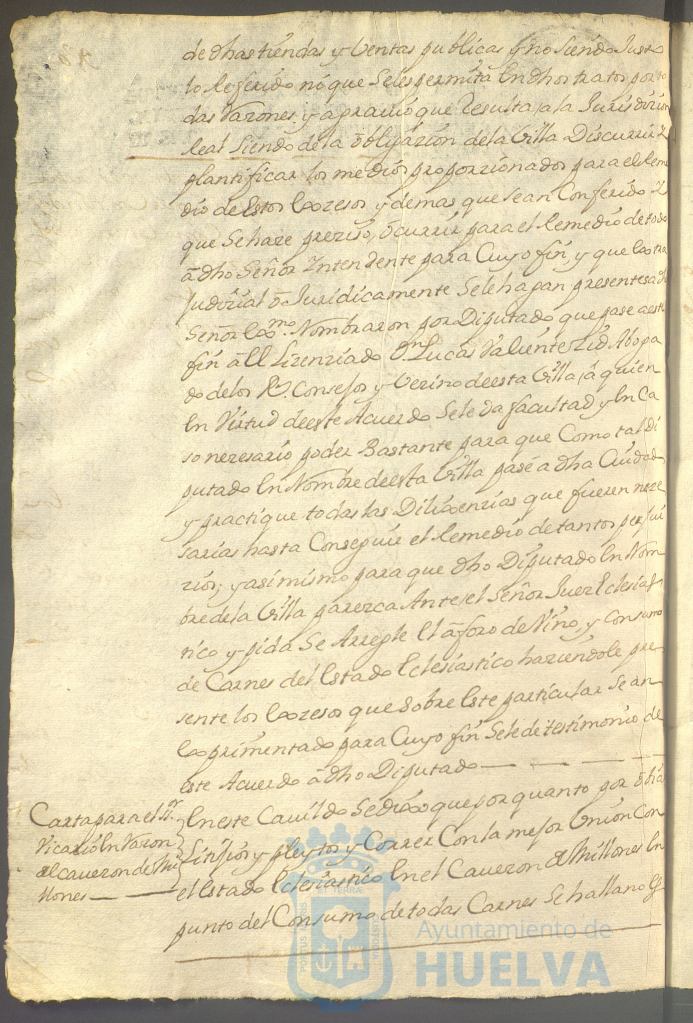 de dhas tiendas y Ventas publicas y no siendo Justo
lo referido nó que Seles permita En dhos tratos por to
das razones; y agravio que resulta, a la Jurisdizion
Real Siendo de la obligazion de la Villa Discurrir
plantificar los medios proporzionados para el Reme
dio de Estos Exzesos y demas que sean Conferido
que Se haze preziso, ocurrir para el Remedio de todo
a dho Señor Intendente para Cuyo fin, y que
Judizial o Juridicamente Sele hagan presentes a
Señor Exmo. Nombraron por Diputado que pase a este
fin â Ll Lizenziado Dn. Lucas Valiente Zid Aboga
do de los Rs. Consejos y Vezino de esta Villa, a quien
En Virtud de este Acuerdo Sele da facultad y En Ca
so nezesario poder Bastante para que Como tal di
putado En Nombre de esta Villa pase a dha Ciudad
y practique todas las Dilixenzias que fueren neze
sarias hasta Conseguir el Remedio de tantos perjui
zios; y asimismo para que dho Diputado En Nom
bre de la Villa parezca Ante, el Señor Juez Eclesias
tico y pida Se Arregle El âforo de Vino, y Consumo
de Carnes del Estado Eclesiastico haziendole pre
sente los Exzesos que sobre Este particular Se an
Experimentado para Cuyo fin Sele de testimonio de
este Acuerdo â dho Diputado
Carta para el Sr.
Vicario En razon
al caveron de Mi
llones
En este Cavildo Se dixo que por quanto por obiar
Litixios y pleytos y Correr Con la mejor Union Con
el Estado Eclesiastico En el Caveron de Millones En
punto del Consumo de todas Carnes Se hallano
PORTUS MARIS
ET TERRAE
CUSTODIA
Ayuntamiento de
HUELVA